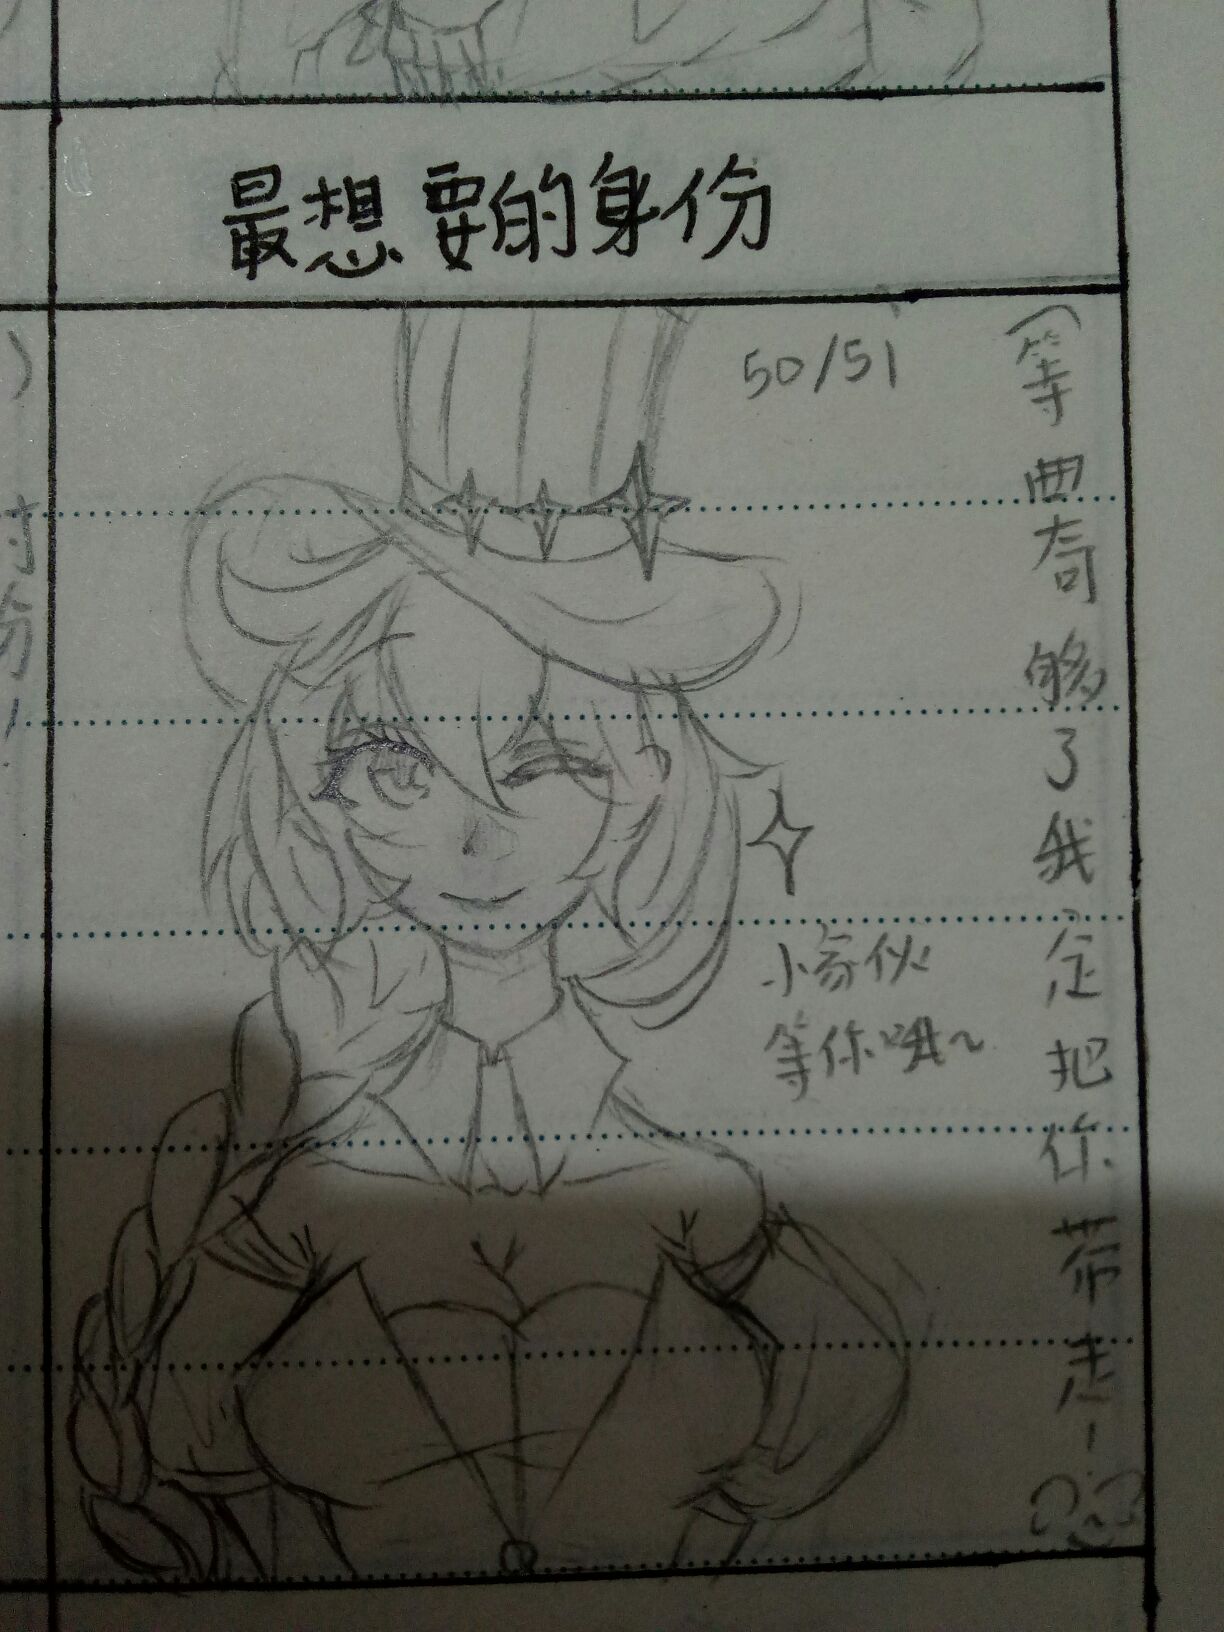 最想要的身份
50/51
(等曲奇够了我一定把你带走~
小家伙
等你哦~